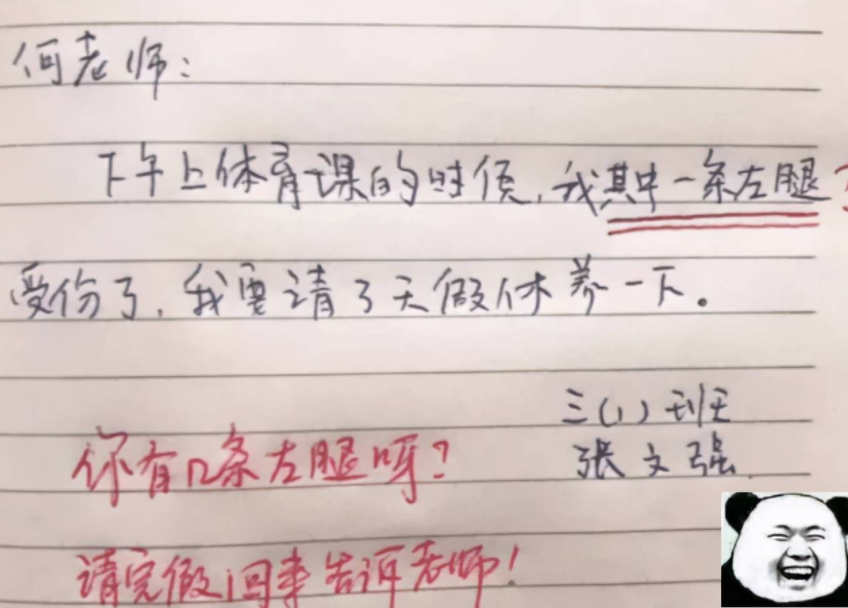 何老师:
下午上体育课的时候,我其中一条左腿?
受伤了,我要请3天假休养一下。
三(1)班
张文强
你有几条左腿呀?
请完假回来告诉老师!